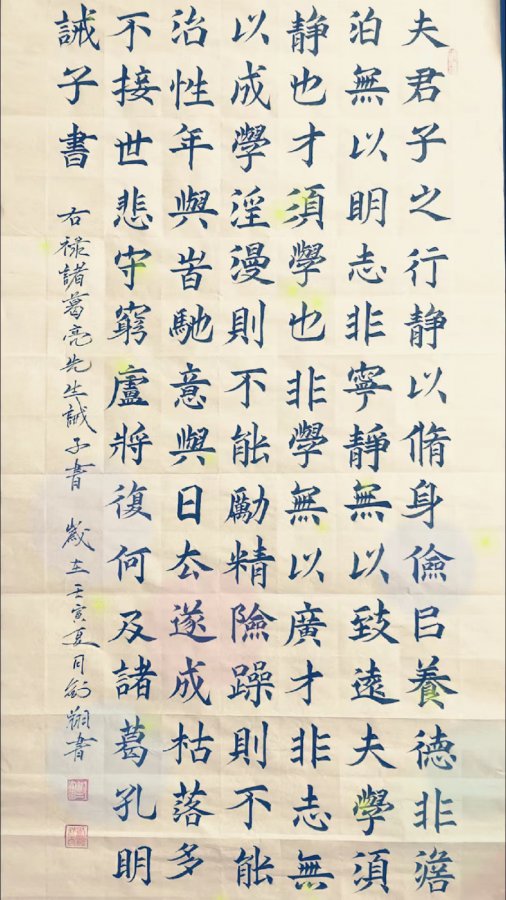 夫君子之行静以脩身儉㠯養德非澹
泊無以明志非寧静無以致遠夫學須
静也才須學也非學無以廣才非志無
以成學淫漫則不能勵精險躁則不能
治性年與峕馳意與日厺遂成枯落多
不接世悲守窮廬將復何及諸葛孔明
誡子書 右禄諸葛亮先生誡子書 歲在壬寅夏月劍翔書